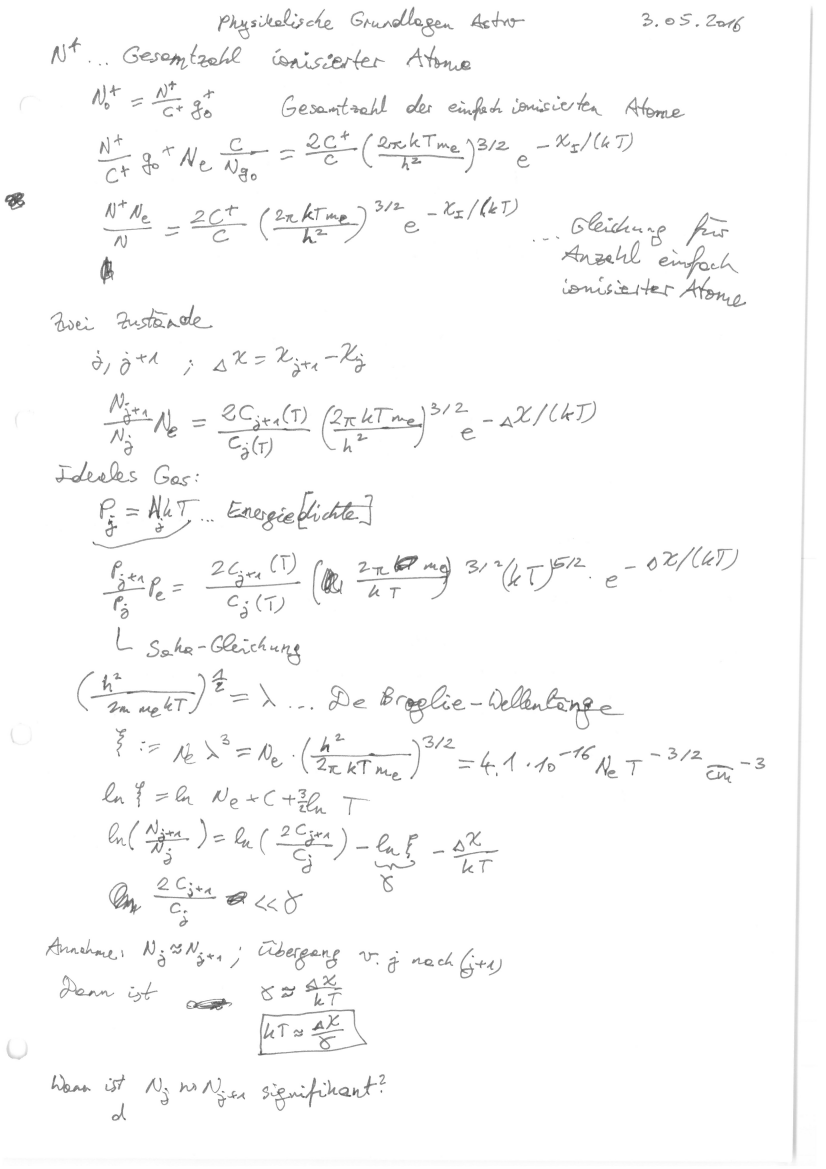 Physikalische Grundlagen Astro 3.05.2016
N⁺ ... Gesamtzahl ionisierter Atome
N₀⁺ = N⁺/C⁺ g₀⁺ Gesamtzahl der einfach ionisierten Atome
N⁺/C⁺ g₀⁺ Nₑ C/(N g₀) = 2C⁺/C (2πkTmₑ/h²)^3/2 e^-χ_I/(kT)
N⁺Nₑ/N = 2C⁺/C (2πkTmₑ/h²)^3/2 e^-χ_I/(kT) ... Gleichung für
Anzahl einfach
ionisierter Atome
Zwei Zustände
j, j+1 ; Δχ = χ_j+1 - χ_j
N_j+1/N_j Nₑ = 2C_j+1(T)/C_j(T) (2πkTmₑ/h²)^3/2 e^-Δχ/(kT)
Ideales Gas:
P_j = N_j kT ... Energie[dichte]
P_j+1/P_j Pₑ = 2C_j+1(T)/C_j(T) (2π mₑ/kT)^3/2 (kT)^5/2 · e^-Δχ/(kT)
└ Saha-Gleichung
(h²/(2π mₑkT))^1/2 = λ ... De Broglie-Wellenlänge
ξ := Nₑ λ³ = Nₑ · (h²/(2πkTmₑ))^3/2 = 4.1 · 10^-16 Nₑ T^-3/2 cm^-3
ln ξ = ln Nₑ + C + 3/2 ln T
ln(N_j+1/N_j) = ln(2C_j+1/C_j) - ln ξ - Δχ/kT
γ
2C_j+1/C_j << γ
Annahme: N_j ≈ N_j+1 ; Übergang v. j nach (j+1)
Dann ist γ ≈ Δχ/kT
kT ≈ Δχ/γ
Wann ist N_j → N_j+1 signifikant?
d